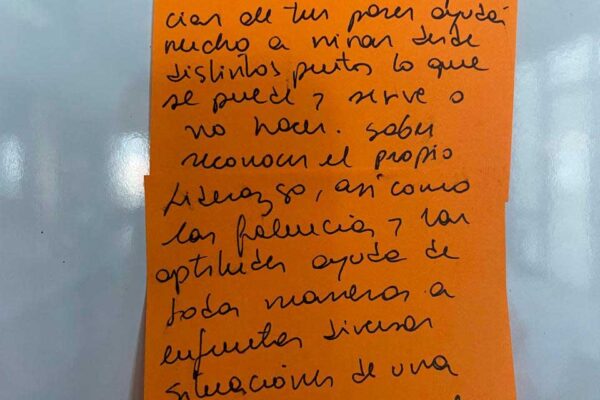 cias de tus pares ayudan
mucho a mirar desde
distintos puntos lo que
se puede y sirve o
no hacer. Saber
reconocer el propio
liderazgo, así como
las falencias y las
aptitudes ayuda de
todas maneras a
enfrentar diversas
situaciones de una